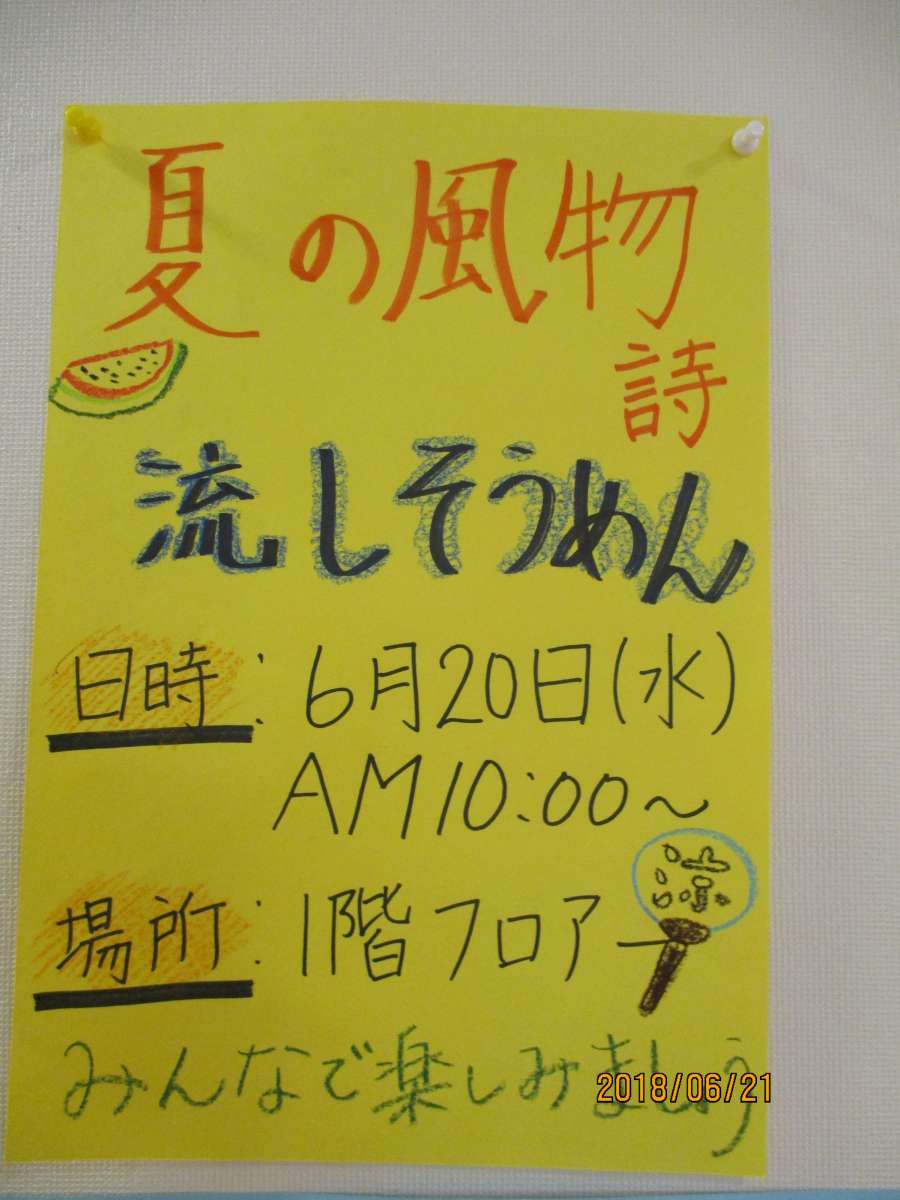 夏の風物
詩
流しそうめん
日時：6月20日(水)
AM10:00～
涼
場所：1階フロアー
みんなで楽しみましょう
2018/06/21